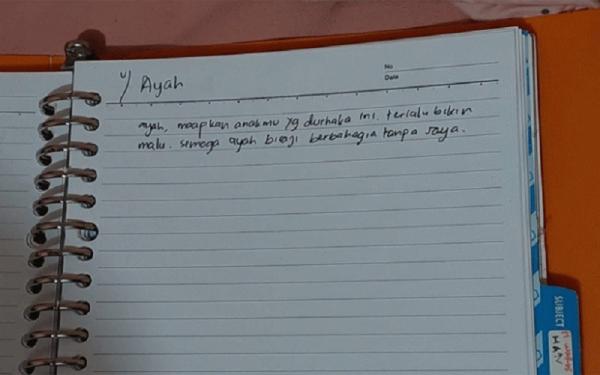 u/ Ayah
No
Date
ayah, maapkan anakmu yg durhaka ini. terlalu bikin
malu. semoga ayah bisaji berbahagia tanpa saya.
SUBJECT